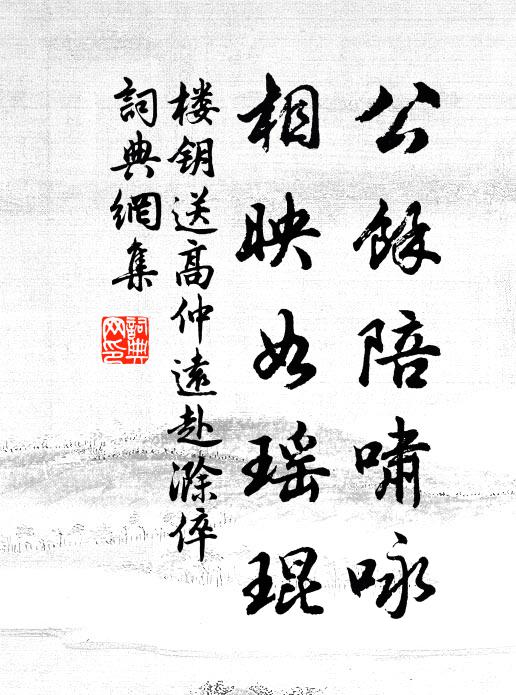 公餘陪啸咏
相映如瑶琨
楼钥送高仲遠赴滁倅
詞典網集
詞典
网印